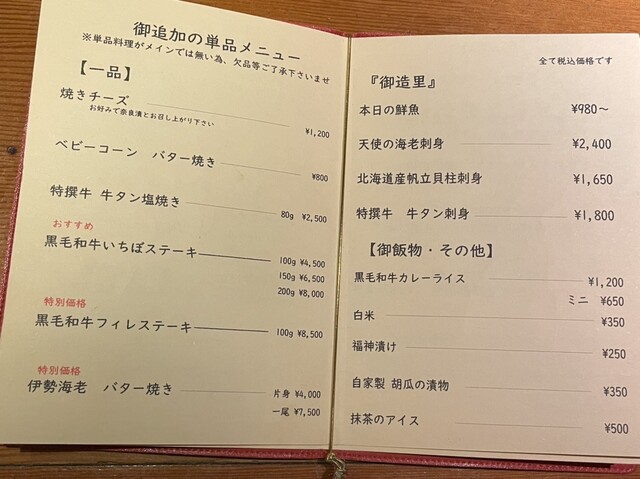 御追加の単品メニュー
※単品料理がメインでは無い為、欠品等ご了承下さいませ
【一品】
焼きチーズ ¥1,200
お好みで奈良漬とお召し上がり下さい
ベビーコーン バター焼き ¥800
特撰牛 牛タン塩焼き 80g ¥2,500
おすすめ
黒毛和牛いちぼステーキ 100g ¥4,500
150g ¥6,500
200g ¥8,000
特別価格
黒毛和牛フィレステーキ 100g ¥8,500
特別価格
伊勢海老 バター焼き 片身 ¥4,000
一尾 ¥7,500
全て税込価格です
『御造里』
本日の鮮魚 ¥980～
天使の海老刺身 ¥2,400
北海道産帆立貝柱刺身 ¥1,650
特撰牛 牛タン刺身 ¥1,800
【御飯物・その他】
黒毛和牛カレーライス ¥1,200
ミニ ¥650
白米 ¥350
福神漬け ¥250
自家製 胡瓜の漬物 ¥350
抹茶のアイス ¥500